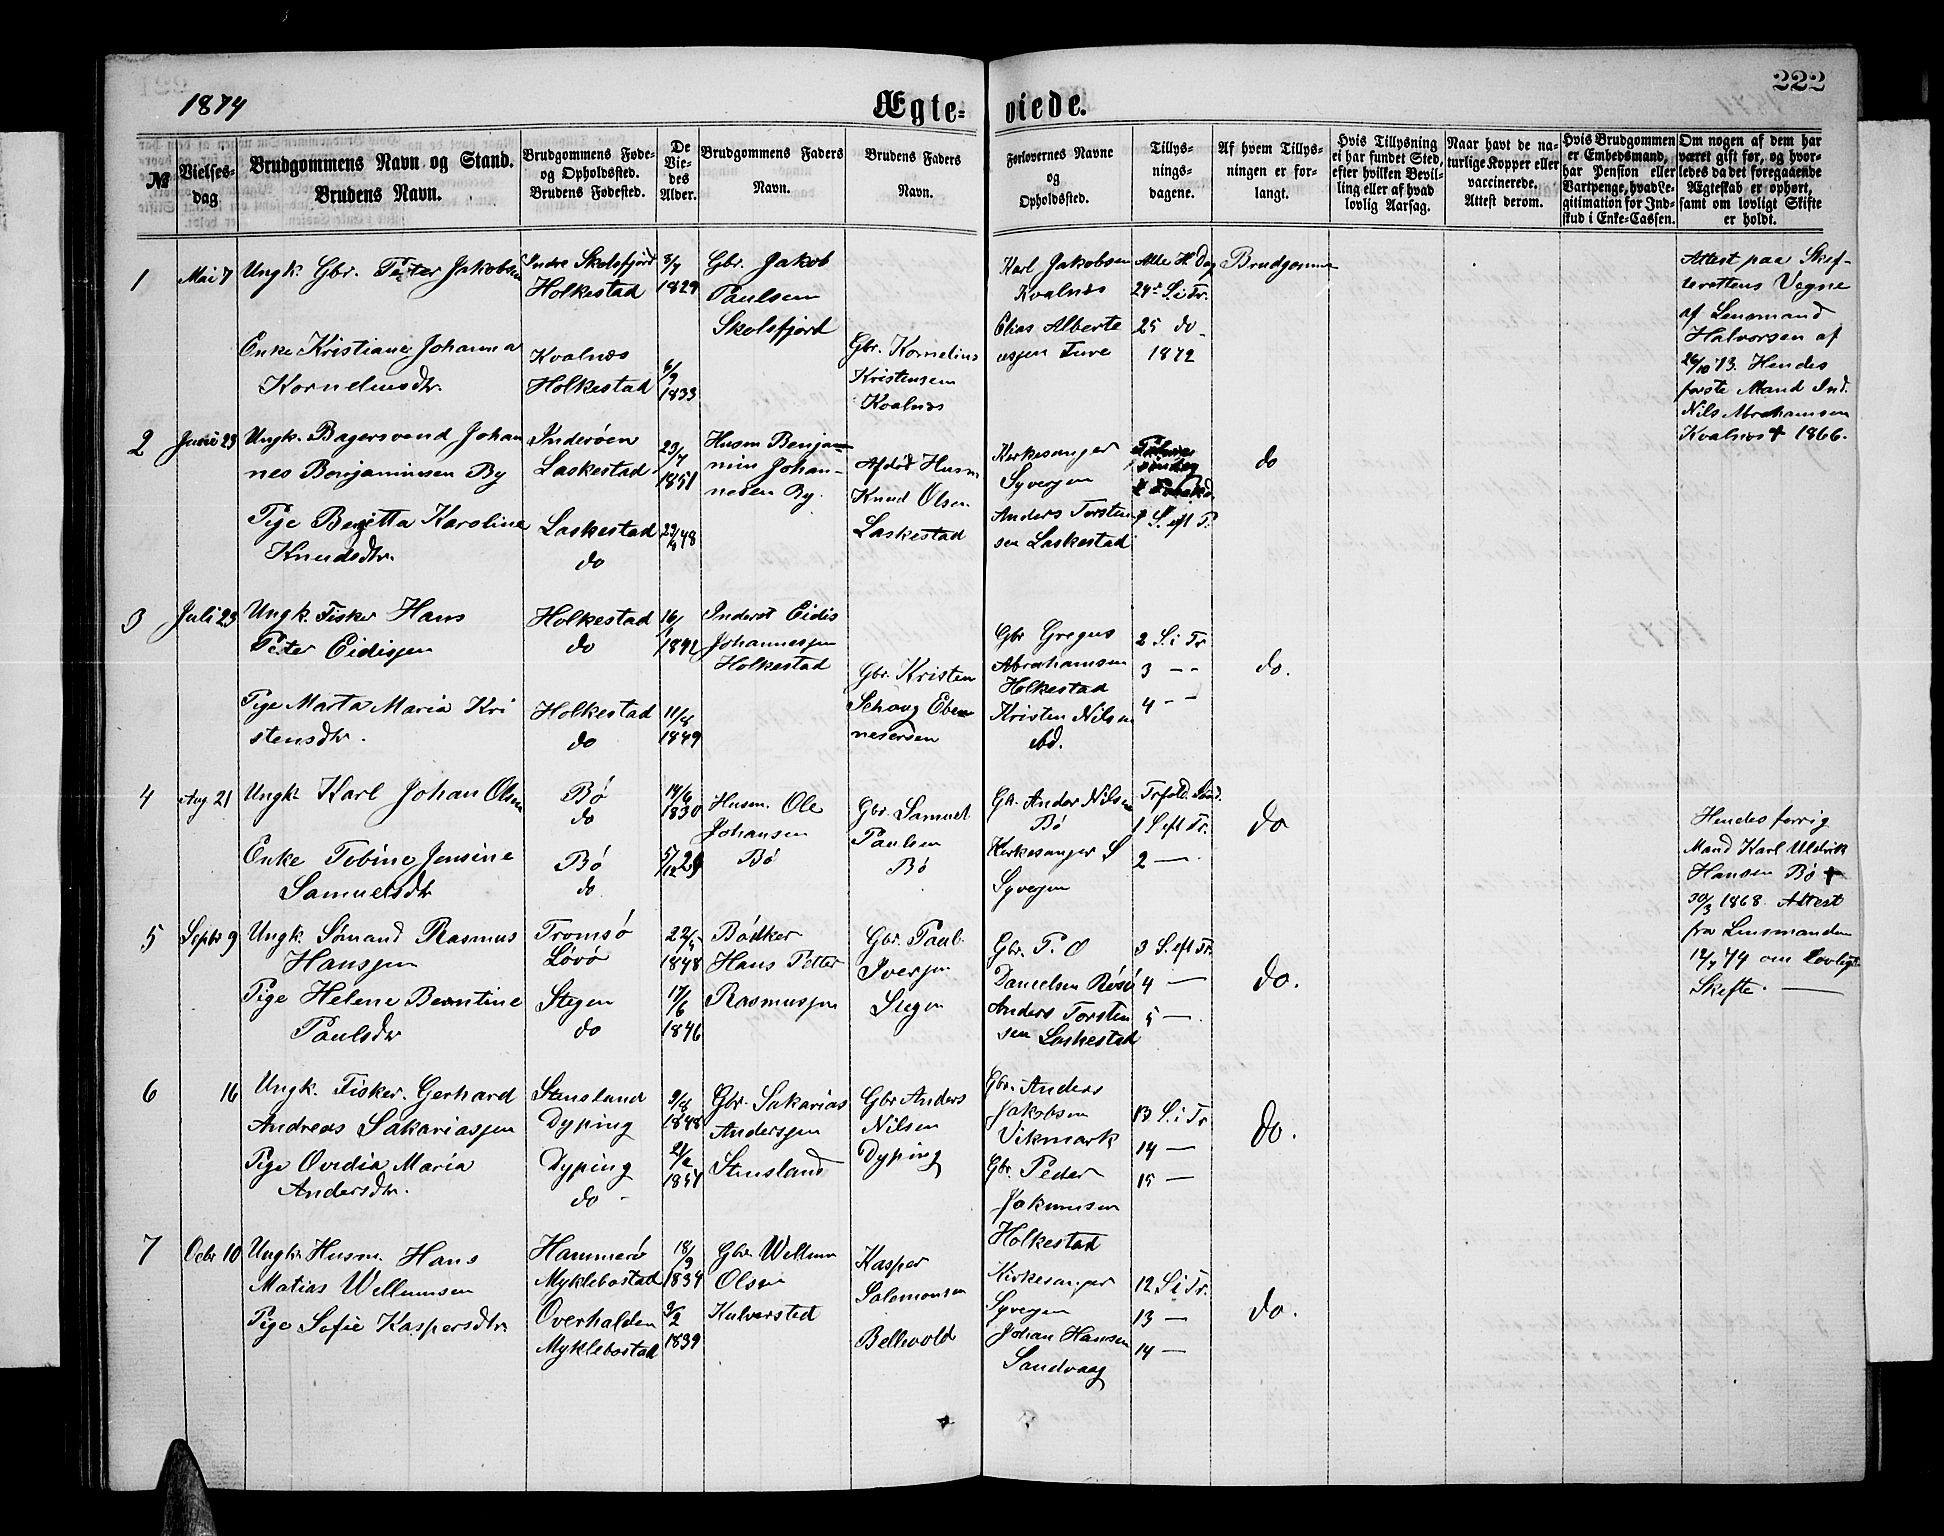 222
1874
Ægte- viede.
№
Vielses-
dag
Brudgommens Navn og Stand.
Brudens Navn.
Brudgommens Føde-
og Opholdssted.
Brudens Fødested.
De
Vie-
des
Alder.
Brudgommens Faders
Navn.
Brudens Faders
Navn.
Forlovernes Navne
og
Opholdssted.
Tillys-
nings-
dagene.
Af hvem Tillys-
ningen er for-
langt.
Hvis Tillysning
ei har fundet Sted,
efter hvilken Bevil-
ling eller af hvad
lovlig Aarsag.
Naar havt de na-
turlige Kopper eller
vaccinerede.
Attest derom.
Hvis Brudgommen
er Embedsmand,
har Pension eller
Vartpenge, hvad Le-
gitimation for Ind-
skud i Enke-Cassen.
Om nogen af dem har
været gift før, og hvor-
ledes da det foregaaende
Ægteskab er ophørt,
samt om lovligt Skifte
er holdt.
1
Mai 7
Ungk. Gbr. Peter Jakobsen
Enke Kristiane Johanna
Kornelius dtr.
Indre Skolsfjord
Holkestad
Kvalnæs
Holkestad
3/7
1829
6/9
1833
Gbr. Jakob
Paulsen
Skolsfjord
Gbr. Kornelius
Kristensen
Kvalnæs
Karl Jakobsen
Kvalnæs
Elias Alberte
usjen Ture
Alle H Dag
24de S. i Tr.
25 do
1872
Brudgommen
Attest paa Skif-
terettens Vegne
af Lensmand
Halvorsen af
26/10 73. Hendes
første Mand Ind.
Nils Abrahamsen
Kvalnæs † 1866.
2
Juni 23
Ungk. Bagersvend Johan
nes Benjaminsen By
Pige Beretta Karoline
Knudsdtr.
Inderøen
Laskestad
Laskestad
do
23/7
1851
48
Husm Benja-
min Johan-
nesen By.
Afdød Husm
Knud Olsen
Laskestad
Kirkesanger
Syversen
Anders Torsten
sen Laskestad
S. eft T.
do
3
Juli 23
Ungk. Fisker Hans
Peter Eidisjen
Pige Marta Maria Kri
stensdtr.
Holkestad
do
Holkestad
do
16/1
1842
11/8
1849
Inderst Eidis
Johannesjen
Holkestad
Gbr. Kristen
Schaug Ebe
nesersen
Gbr Gregus
Abrahamsen
Holkestad
Kristen Nilsen
ibd.
2 S. i Tr.
3 - -
4 - -
do.
4
Aug 21
Ungk. Karl Johan Olsen
Enke Tobine Jensine
Samuelsdtr
Bø
do
Bø
do
14/6
1830
5/12 29
Husm. Ole
Johansen
Bø
Gbr. Samuel
Paulsen
Bø
Gb. Ander Nilsen
Bø
Kirkesanger S
Syversen
Trfold. Sønd.
1 S eft Tr.
2 —
do
Hendes forrig
Mand Karl Uldrik
Hansen Bø †
30/3 1868. Attest
fra Lensmanden
12/7 74 om lovligt
Skifte. —
5
Septbr 9
Ungk. Sømand Rasmus
Hansjen
Pige Helene Berntine
Paulsdtr
Tromsø
Løvø
Stegen
do
22/5
1848
17/6
1846
Bødker
Hans Petter
Rasmusjen
Gbr. Paul
Iversjen
Stegen
Gbr. P. O
Danielsen Røsø
Anders Torsten
sen Laskestad
3 S. eft Tr.
4 —
5 —
do.
6
16
Ungk. Fisker. Gerhard
Andreas Sakariasjen
Pige Ovedia Maria
Andersdtr.
Stensland
Dyping
Dyping
do
9/8
1848
21/2
1854
Gbr. Sakarias
Andersjen
Stensland
Gbr Anders
Nilsen
Dyping
Gbr. Anders
Jakobsen
Vikmark
Gbr. Peder
Jakunsen
Holkestad
13 S. i Tr.
14 —
15 —
do.
7
Octbr 10
Ungk. Husm. Hans
Matias Wellumsen
Pige Sofie Kaspersdtr
Hammerø
Myklebostad
Overhalden
Myklebostad
18/9
1834
3/2
1839
Gbr. Wellum
Olsen
Kulversted
Kasper
Salomonsen
Bellevold
Kirkesanger
Syversen
Johan Hansen
Sandvaag
12 S. i Tr.
13 —
14 —
do.